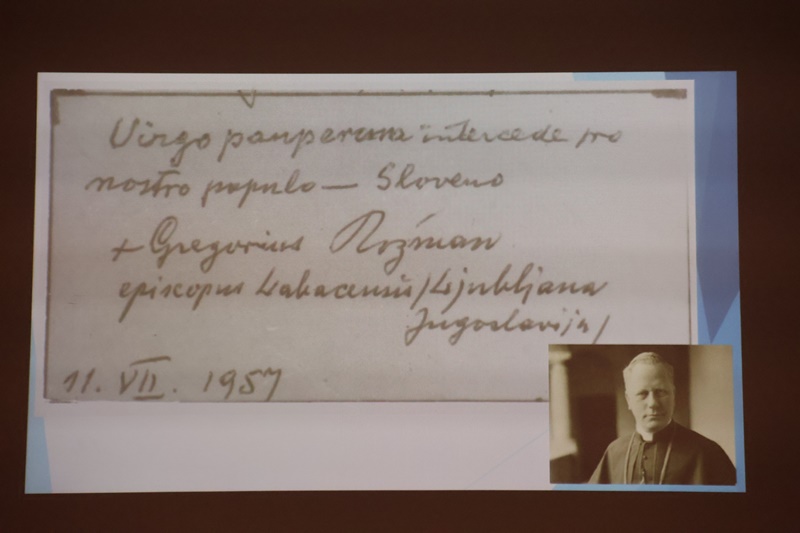 Virgo pauperum intercede pro
nostro populo — Sloveno
+ Gregorius Rožman
episcopus Labacensis /Ljubljana
Jugoslavija/
11. VII. 1957